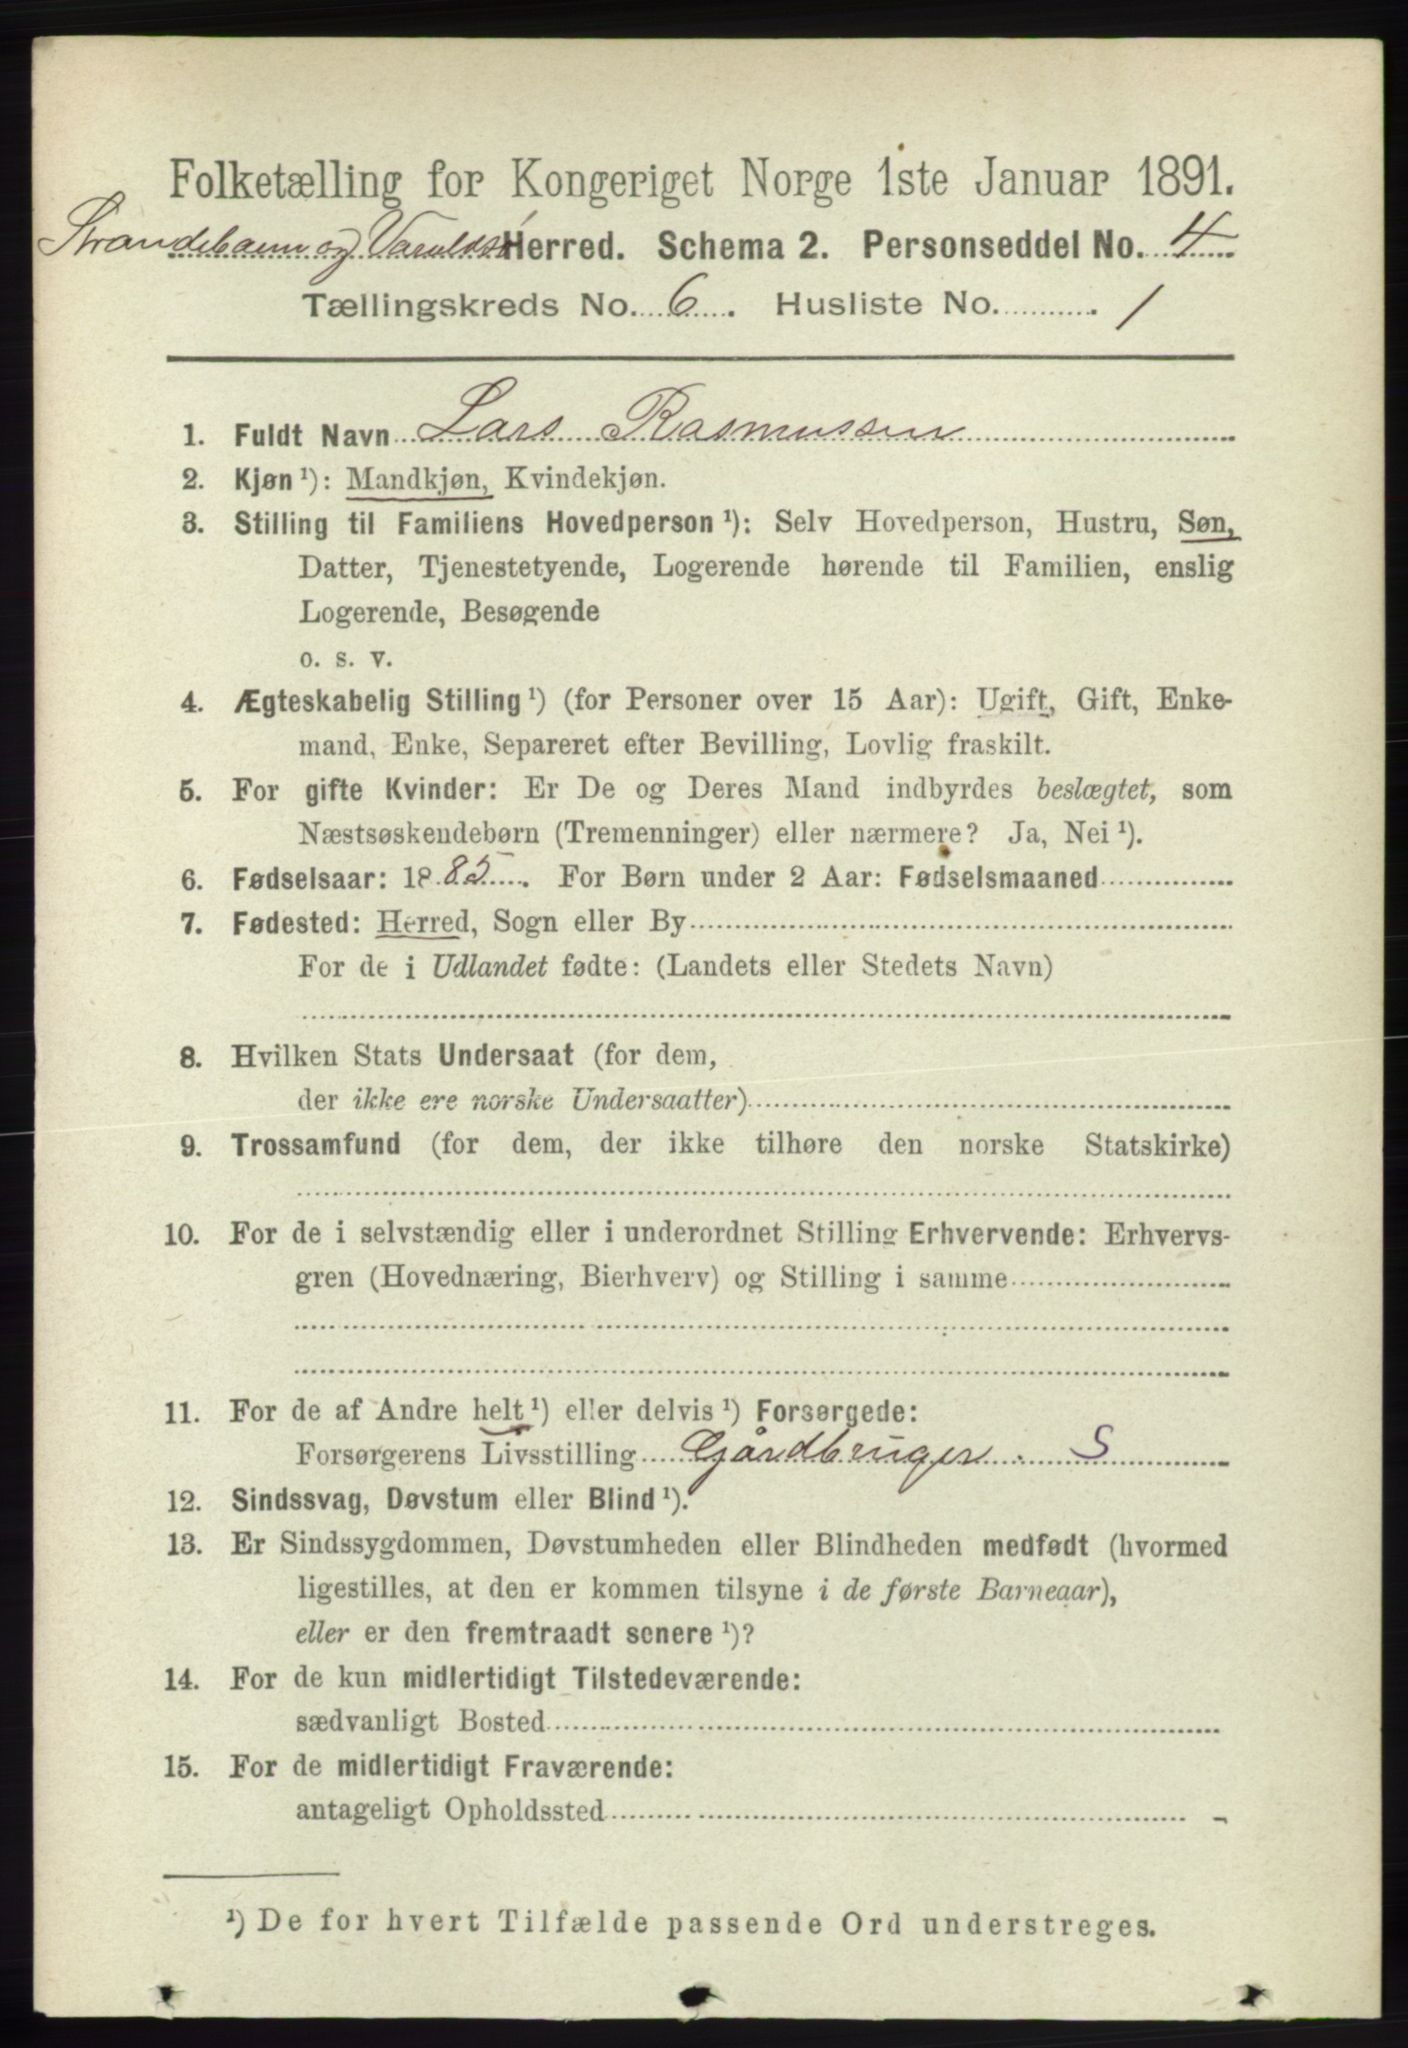 Folketælling for Kongeriget Norge 1ste Januar 1891.
Strandebarm og Varaldsø Herred. Schema 2. Personseddel No. 4
Tællingskreds No. 6. Husliste No. 1
1. Fuldt Navn Lars Rasmussen
2. Kjøn ¹): Mandkjøn, Kvindekjøn.
3. Stilling til Familiens Hovedperson ¹): Selv Hovedperson, Hustru, Søn,
Datter, Tjenestetyende, Logerende hørende til Familien, enslig
Logerende, Besøgende
o. s. v.
4. Ægteskabelig Stilling ¹) (for Personer over 15 Aar): Ugift, Gift, Enke-
mand, Enke, Separeret efter Bevilling, Lovlig fraskilt.
5. For gifte Kvinder: Er De og Deres Mand indbyrdes beslægtet, som
Næstsøskendebørn (Tremenninger) eller nærmere? Ja, Nei ¹).
6. Fødselsaar: 1885. For Børn under 2 Aar: Fødselsmaaned
7. Fødested: Herred, Sogn eller By
For de i Udlandet fødte: (Landets eller Stedets Navn)
8. Hvilken Stats Undersaat (for dem,
der ikke ere norske Undersaatter)
9. Trossamfund (for dem, der ikke tilhøre den norske Statskirke)
10. For de i selvstændig eller i underordnet Stilling Erhvervende: Erhvervs-
gren (Hovednæring, Bierhverv) og Stilling i samme
11. For de af Andre helt ¹) eller delvis ¹) Forsørgede:
Forsørgerens Livsstilling Gårdbruger. S
12. Sindssvag, Døvstum eller Blind ¹).
13. Er Sindssygdommen, Døvstumheden eller Blindheden medfødt (hvormed
ligestilles, at den er kommen tilsyne i de første Barneaar),
eller er den fremtraadt senere ¹)?
14. For de kun midlertidigt Tilstedeværende:
sædvanligt Bosted
15. For de midlertidigt Fraværende:
antageligt Opholdssted
¹) De for hvert Tilfælde passende Ord understreges.